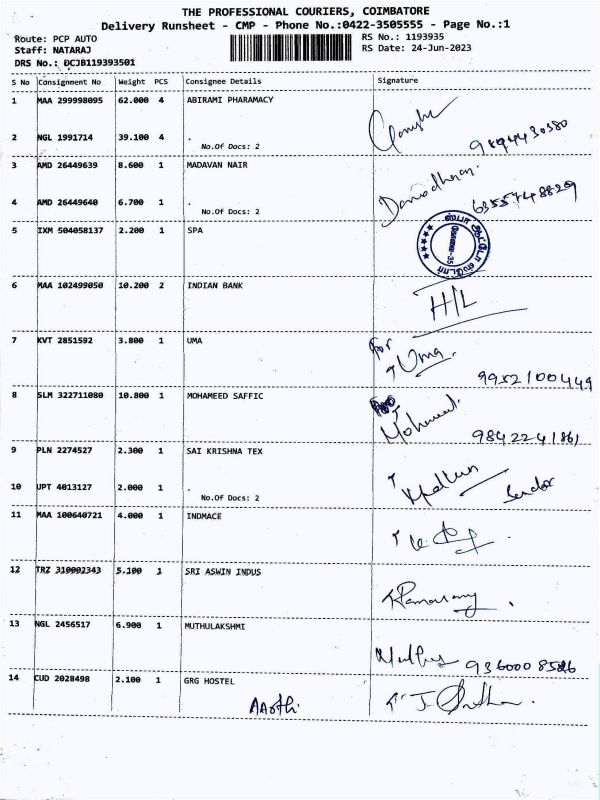 THE PROFESSIONAL COURIERS, COIMBATORE
Delivery Runsheet - CMP - Phone No.:0422-3505555 - Page No.:1
Route: PCP AUTO
RS No.: 1193935
Staff: NATARAJ
RS Date: 24-Jun-2023
DRS No.: DCJB119393501
S No Consignment No Weight PCS Consignee Details Signature
1 MAA 299998095 62.000 4 ABIRAMI PHARAMACY
2 NGL 1991714 39.100 4 .
No.Of Docs: 2
9894430380
3 AMD 26449639 8.600 1 MADAVAN NAIR
Damodharan.
4 AMD 26449640 6.700 1 .
No.Of Docs: 2
6355748829
5 IXM 504058137 2.200 1 SPA
ஸ்பா ஆட்டோ ஸ்டோர்
கோவை-35
6 MAA 102499050 10.200 2 INDIAN BANK
H/L
7 KVT 2851592 3.800 1 UMA
For
Uma.
9952100449
8 SLM 322711080 10.800 1 MOHAMEED SAFFIC
Mohamed.
9842241861
9 PLN 2274527 2.300 1 SAI KRISHNA TEX
10 UPT 4013127 2.000 1 .
No.Of Docs: 2
11 MAA 100640721 4.000 1 INDMACE
12 TRZ 310002343 5.100 1 SRI ASWIN INDUS
Ramasamy.
13 NGL 2456517 6.900 1 MUTHULAKSHMI
Muthu 9360008586
14 CUD 2028498 2.100 1 GRG HOSTEL
AArthi